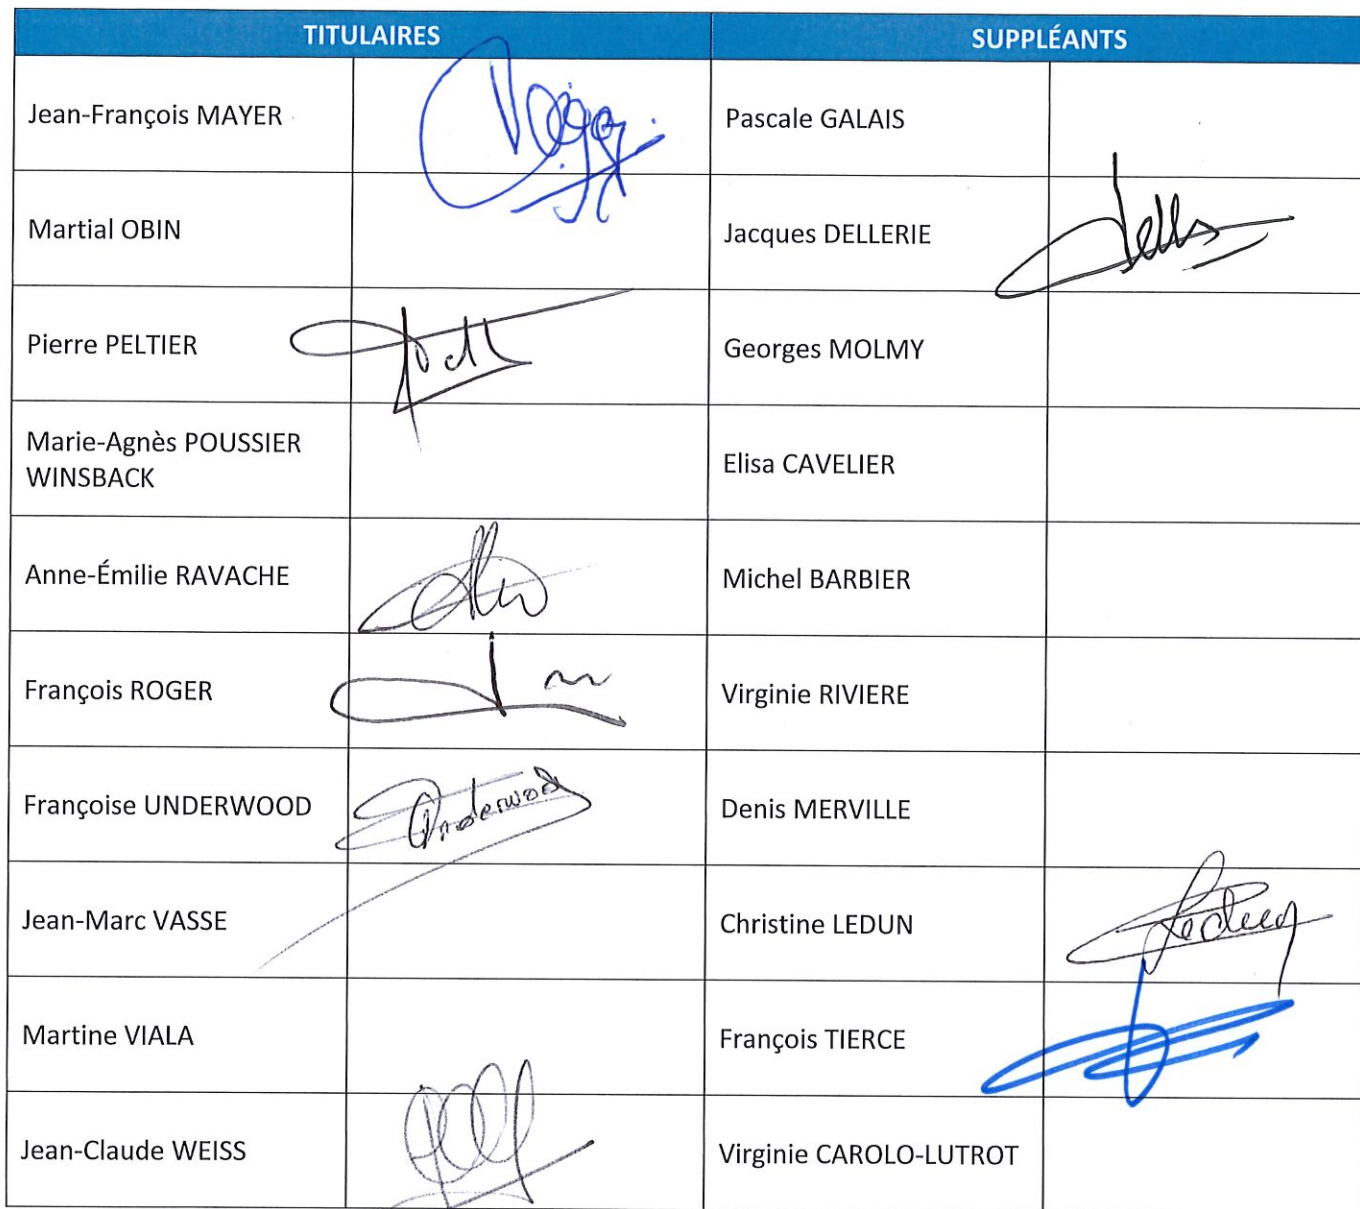 TITULAIRES SUPPLÉANTS
Jean-François MAYER Pascale GALAIS
Martial OBIN Jacques DELLERIE
Pierre PELTIER Georges MOLMY
Marie-Agnès POUSSIER
WINSBACK Elisa CAVELIER
Anne-Émilie RAVACHE Michel BARBIER
François ROGER Virginie RIVIERE
Françoise UNDERWOOD Underwood Denis MERVILLE
Jean-Marc VASSE Christine LEDUN
Martine VIALA François TIERCE
Jean-Claude WEISS Virginie CAROLO-LUTROT